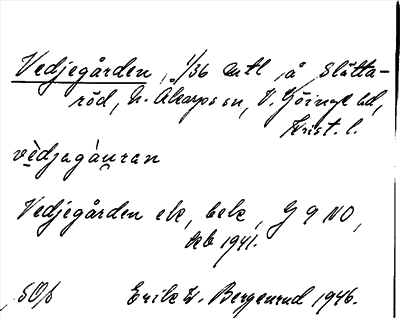 Vedjegården, 1/36 mtl, å Slätta-
röd, N. Åkarps sn, V. Göinge hd,
Krist. l.
vèdjagàuran
Vedjegården ek, bebv, G 9 NO,
kb 1941.
Erik W. Bergenrud 1946.